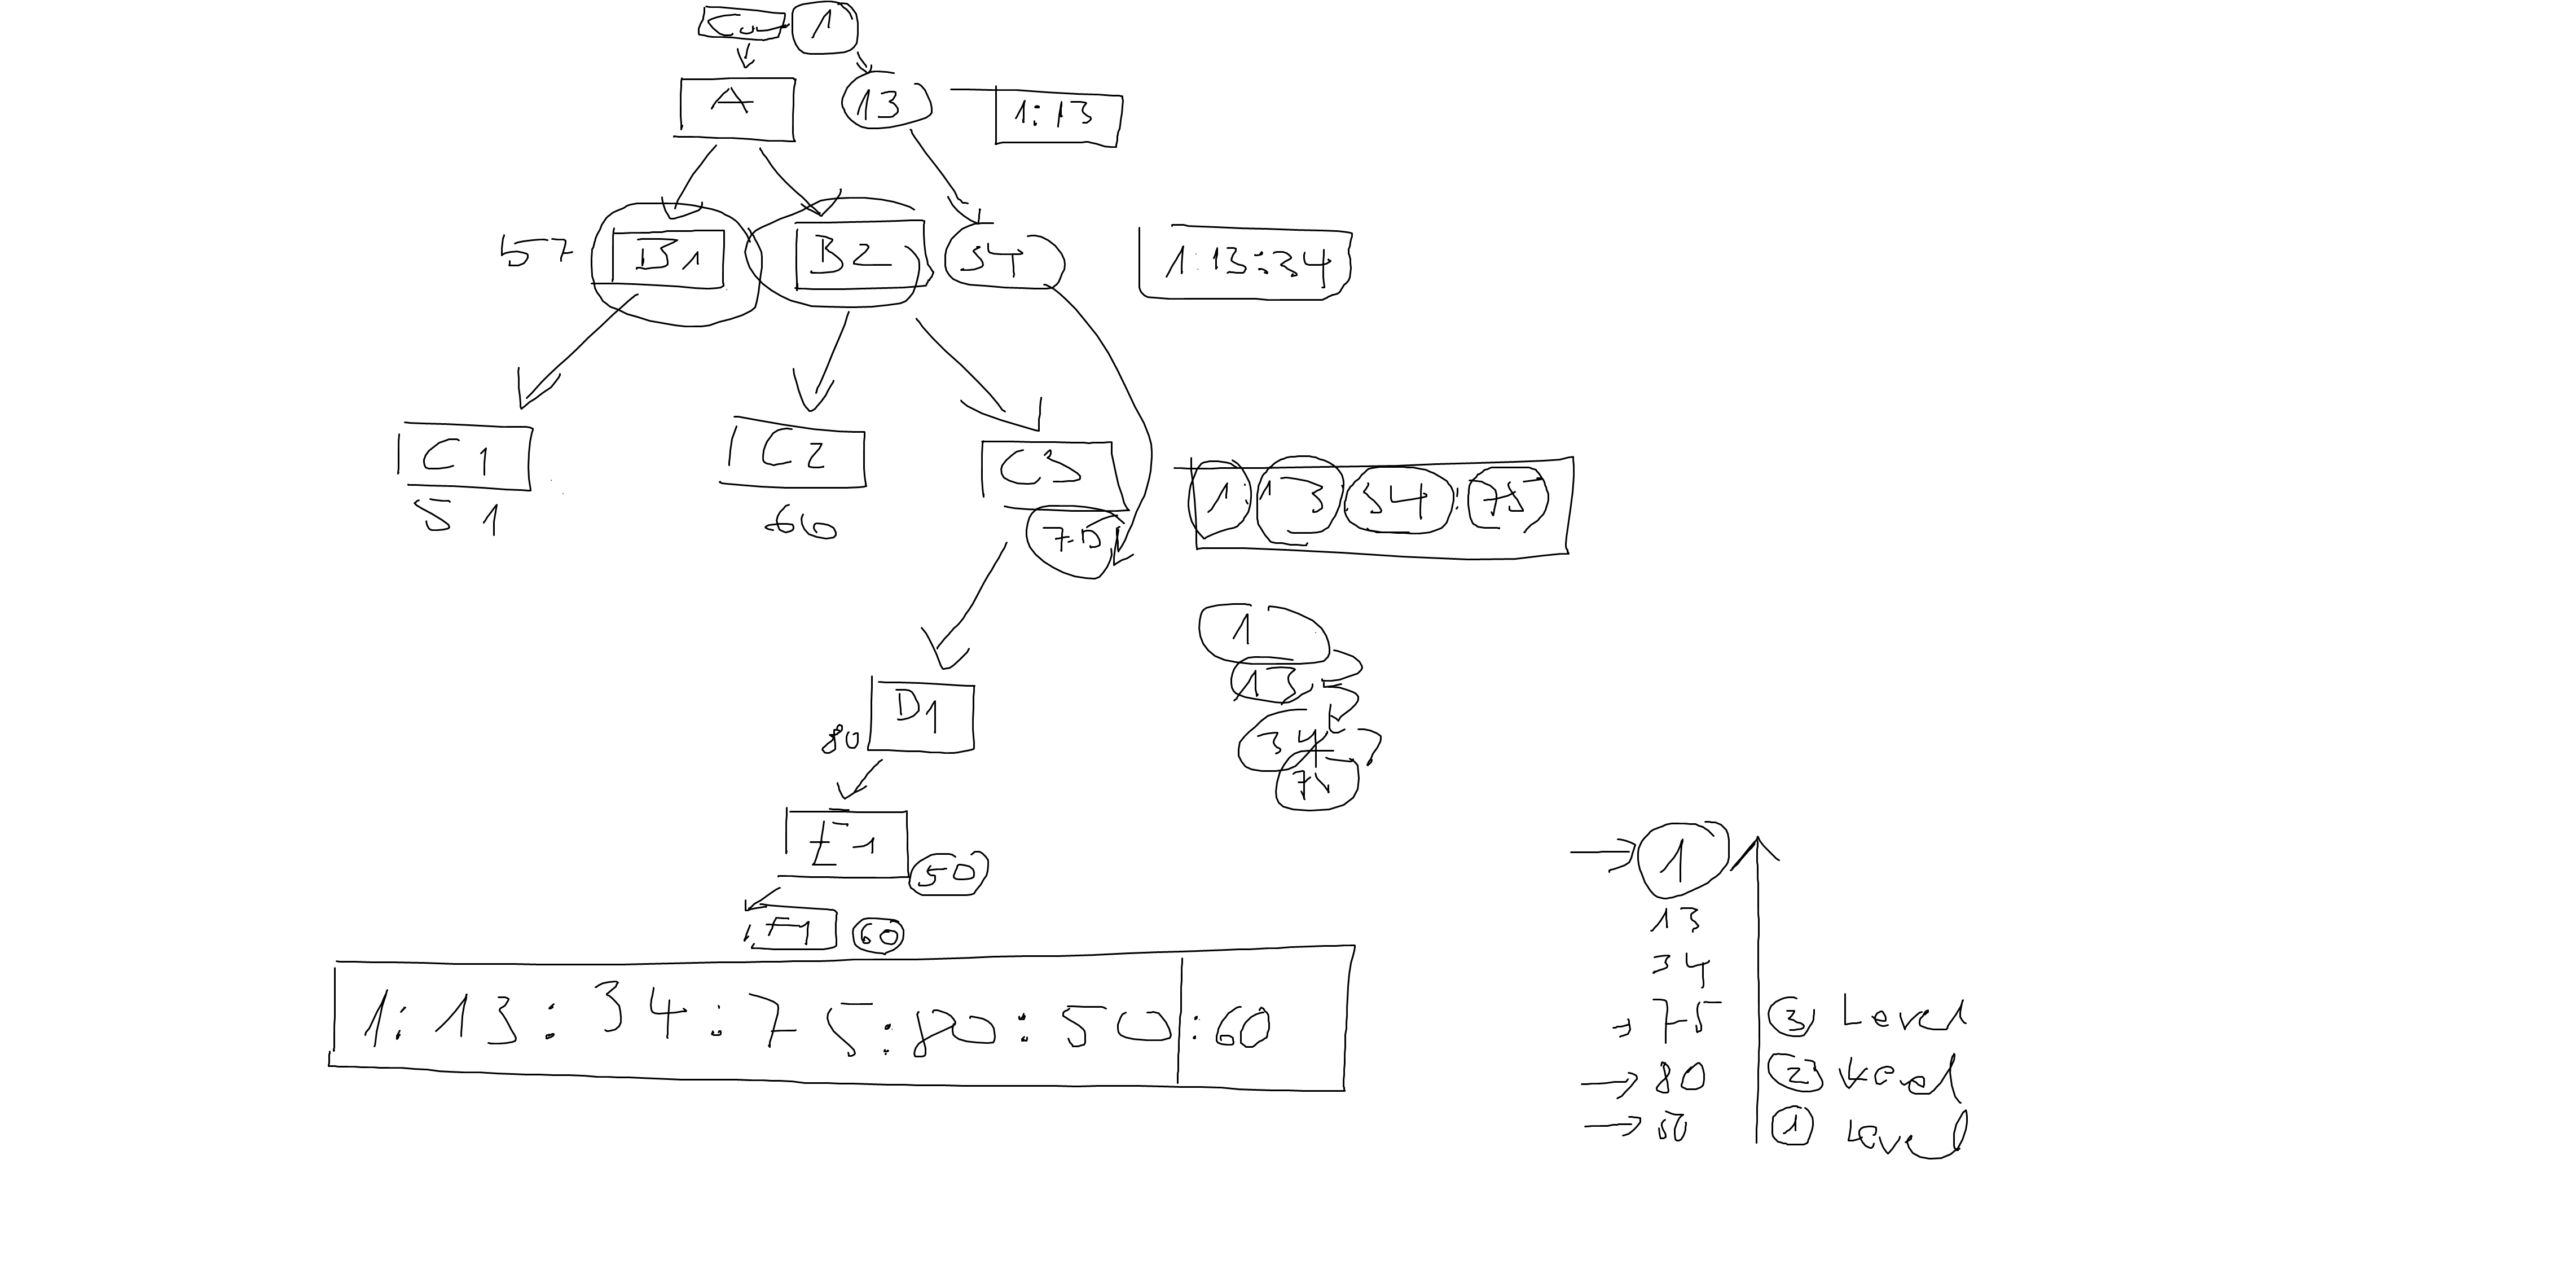 1
A
13
1:13
57
B1
B2
34
1:13:34
C1
C2
C3
51
60
75
1 13 34:75
1
13
34
D1
80
E1
50
F1
60
1:13:34:75:80:50:60
1
13
34
75 3 Level
80 2 Level
50 1 Level